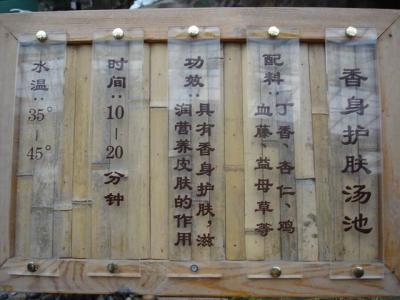 香身护肤汤池
配料：丁香、杏仁、鸡
血藤、益母草等
功效：具有香身护肤，滋
润营养皮肤的作用
时间：10-20分钟
水温：35°-45°